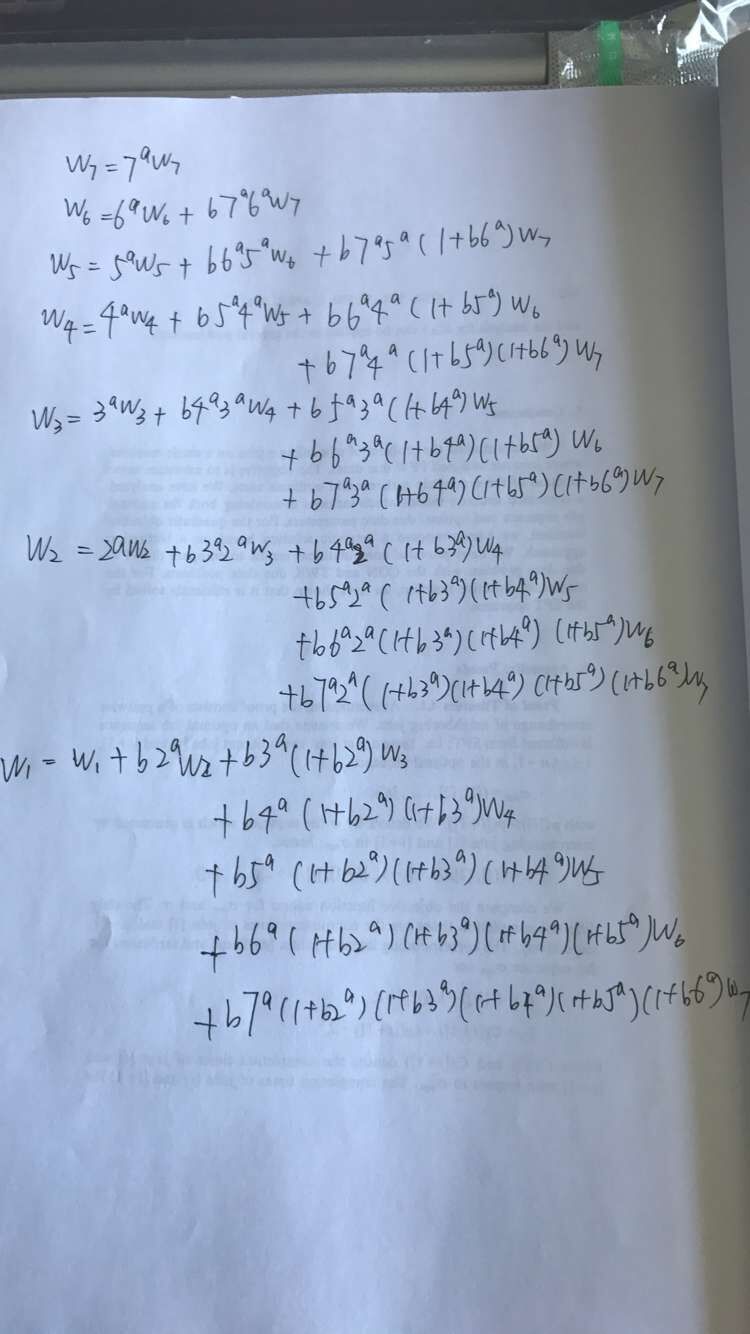 W₇ = 7ᵃW₇
W₆ = 6ᵃW₆ + b7ᵃ6ᵃW₇
W₅ = 5ᵃW₅ + b6ᵃ5ᵃW₆ + b7ᵃ5ᵃ(1+b6ᵃ)W₇
W₄ = 4ᵃW₄ + b5ᵃ4ᵃW₅ + b6ᵃ4ᵃ(1+b5ᵃ)W₆
+ b7ᵃ4ᵃ(1+b5ᵃ)(1+b6ᵃ)W₇
W₃ = 3ᵃW₃ + b4ᵃ3ᵃW₄ + b5ᵃ3ᵃ(1+b4ᵃ)W₅
+ b6ᵃ3ᵃ(1+b4ᵃ)(1+b5ᵃ)W₆
+ b7ᵃ3ᵃ(1+b4ᵃ)(1+b5ᵃ)(1+b6ᵃ)W₇
W₂ = 2ᵃW₂ + b3ᵃ2ᵃW₃ + b4ᵃ2ᵃ(1+b3ᵃ)W₄
+ b5ᵃ2ᵃ(1+b3ᵃ)(1+b4ᵃ)W₅
+ b6ᵃ2ᵃ(1+b3ᵃ)(1+b4ᵃ)(1+b5ᵃ)W₆
+ b7ᵃ2ᵃ(1+b3ᵃ)(1+b4ᵃ)(1+b5ᵃ)(1+b6ᵃ)W₇
W₁ = W₁ + b2ᵃW₂ + b3ᵃ(1+b2ᵃ)W₃
+ b4ᵃ(1+b2ᵃ)(1+b3ᵃ)W₄
+ b5ᵃ(1+b2ᵃ)(1+b3ᵃ)(1+b4ᵃ)W₅
+ b6ᵃ(1+b2ᵃ)(1+b3ᵃ)(1+b4ᵃ)(1+b5ᵃ)W₆
+ b7ᵃ(1+b2ᵃ)(1+b3ᵃ)(1+b4ᵃ)(1+b5ᵃ)(1+b6ᵃ)W₇